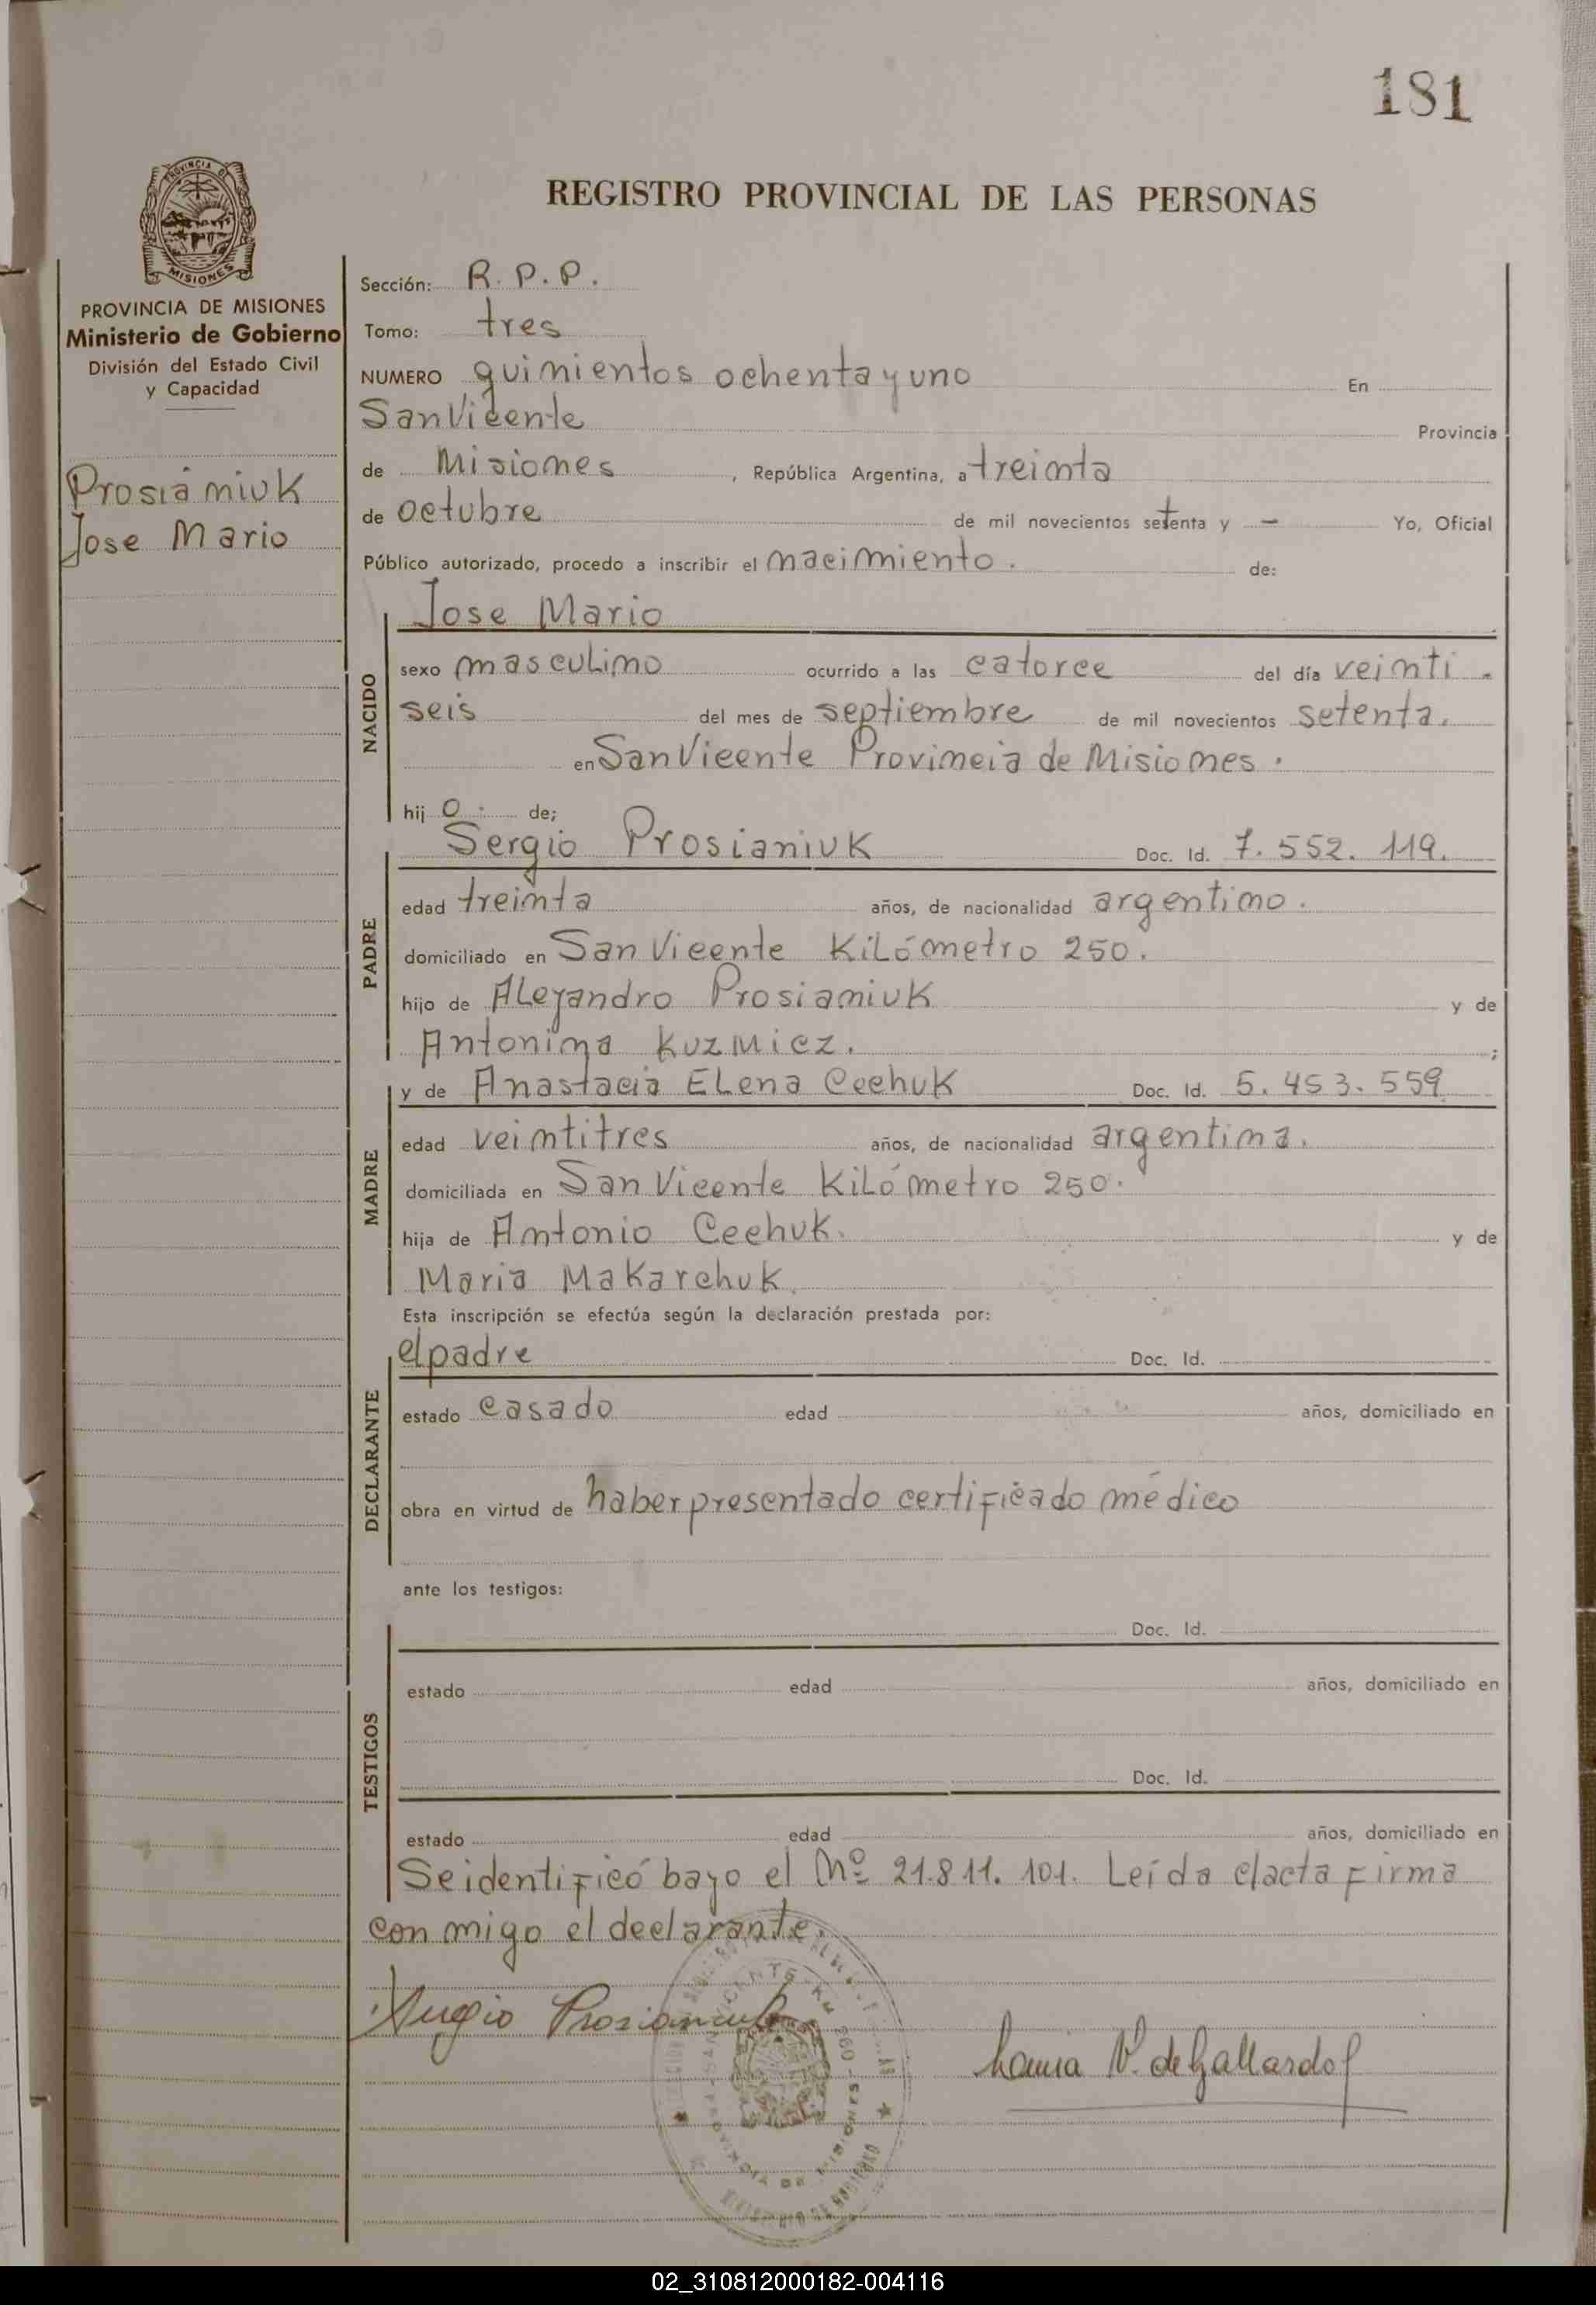 181
PROVINCIA DE
MISIONES
REGISTRO PROVINCIAL DE LAS PERSONAS
PROVINCIA DE MISIONES
Ministerio de Gobierno
División del Estado Civil
y Capacidad
Prosiániuk
Jose Mario
Sección: R.P.P.
Tomo: tres
NUMERO quinientos ochenta y uno En
San Vicente Provincia
de Misiones, República Argentina, a treinta
de octubre de mil novecientos setenta y — Yo, Oficial
Público autorizado, procedo a inscribir el nacimiento. de:
NACIDO
Jose Mario
sexo masculino ocurrido a las catorce del día veinti-
seis del mes de septiembre de mil novecientos setenta.
en San Vicente Provincia de Misiones.
hijo. de;
PADRE
Sergio Prosianiuk Doc. Id. 7.552.119.
edad treinta años, de nacionalidad argentino.
domiciliado en San Vicente Kilómetro 250.
hijo de Alejandro Prosianiuk y de
Antonina Kuzmicz.;
MADRE
y de Anastacia Elena Cechuk Doc. Id. 5.453.559
edad veintitres años, de nacionalidad argentina.
domiciliada en San Vicente Kilómetro 250.
hija de Antonio Cechuk. y de
Maria Makarchuk.
Esta inscripción se efectúa según la declaración prestada por:
DECLARANTE
el padre Doc. Id.
estado casado edad años, domiciliado en
obra en virtud de haber presentado certificado médico
ante los testigos:
TESTIGOS
Doc. Id.
estado edad años, domiciliado en
Doc. Id.
estado edad años, domiciliado en
Se identificó bajo el Nº 21.811.101. Leída el acta firma
con migo el declarante.
Sergio Prosianiuk
V. de Gallardo
02_310812000182-004116